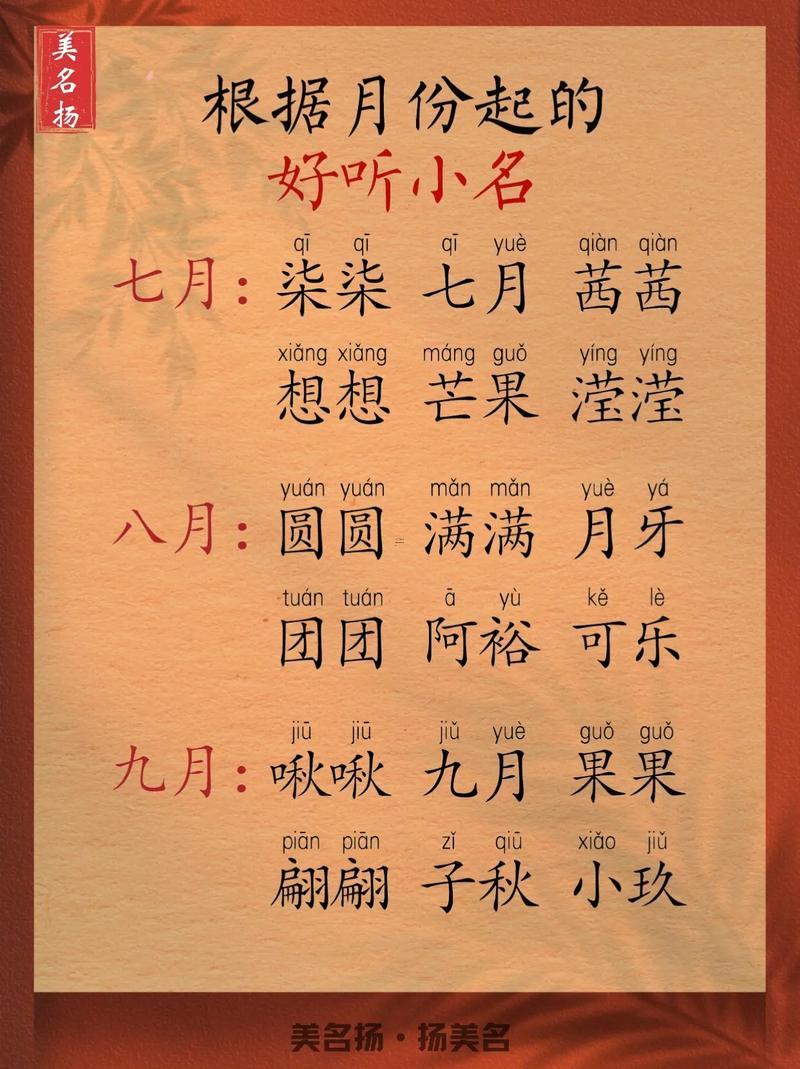 美名扬
根据月份起的
好听小名
qī qī qī yuè qiàn qiàn
七月：柒柒 七月 茜茜
xiǎng xiǎng máng guǒ yíng yíng
想想 芒果 滢滢
yuán yuán mǎn mǎn yuè yá
八月：圆圆 满满 月牙
tuán tuán ā yù kě lè
团团 阿裕 可乐
jiū jiū jiǔ yuè guǒ guǒ
九月：啾啾 九月 果果
piān piān zǐ qiū xiǎo jiǔ
翩翩 子秋 小玖
美名扬·扬美名